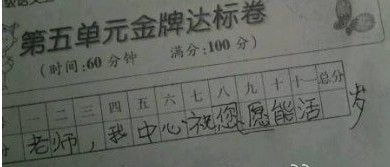 第五单元金牌达标卷
(时间:60分钟 满分:100分)
一 二 三 四 五 六 七 八 九 十 十一 总分
老师,我中心祝您愿能活 岁